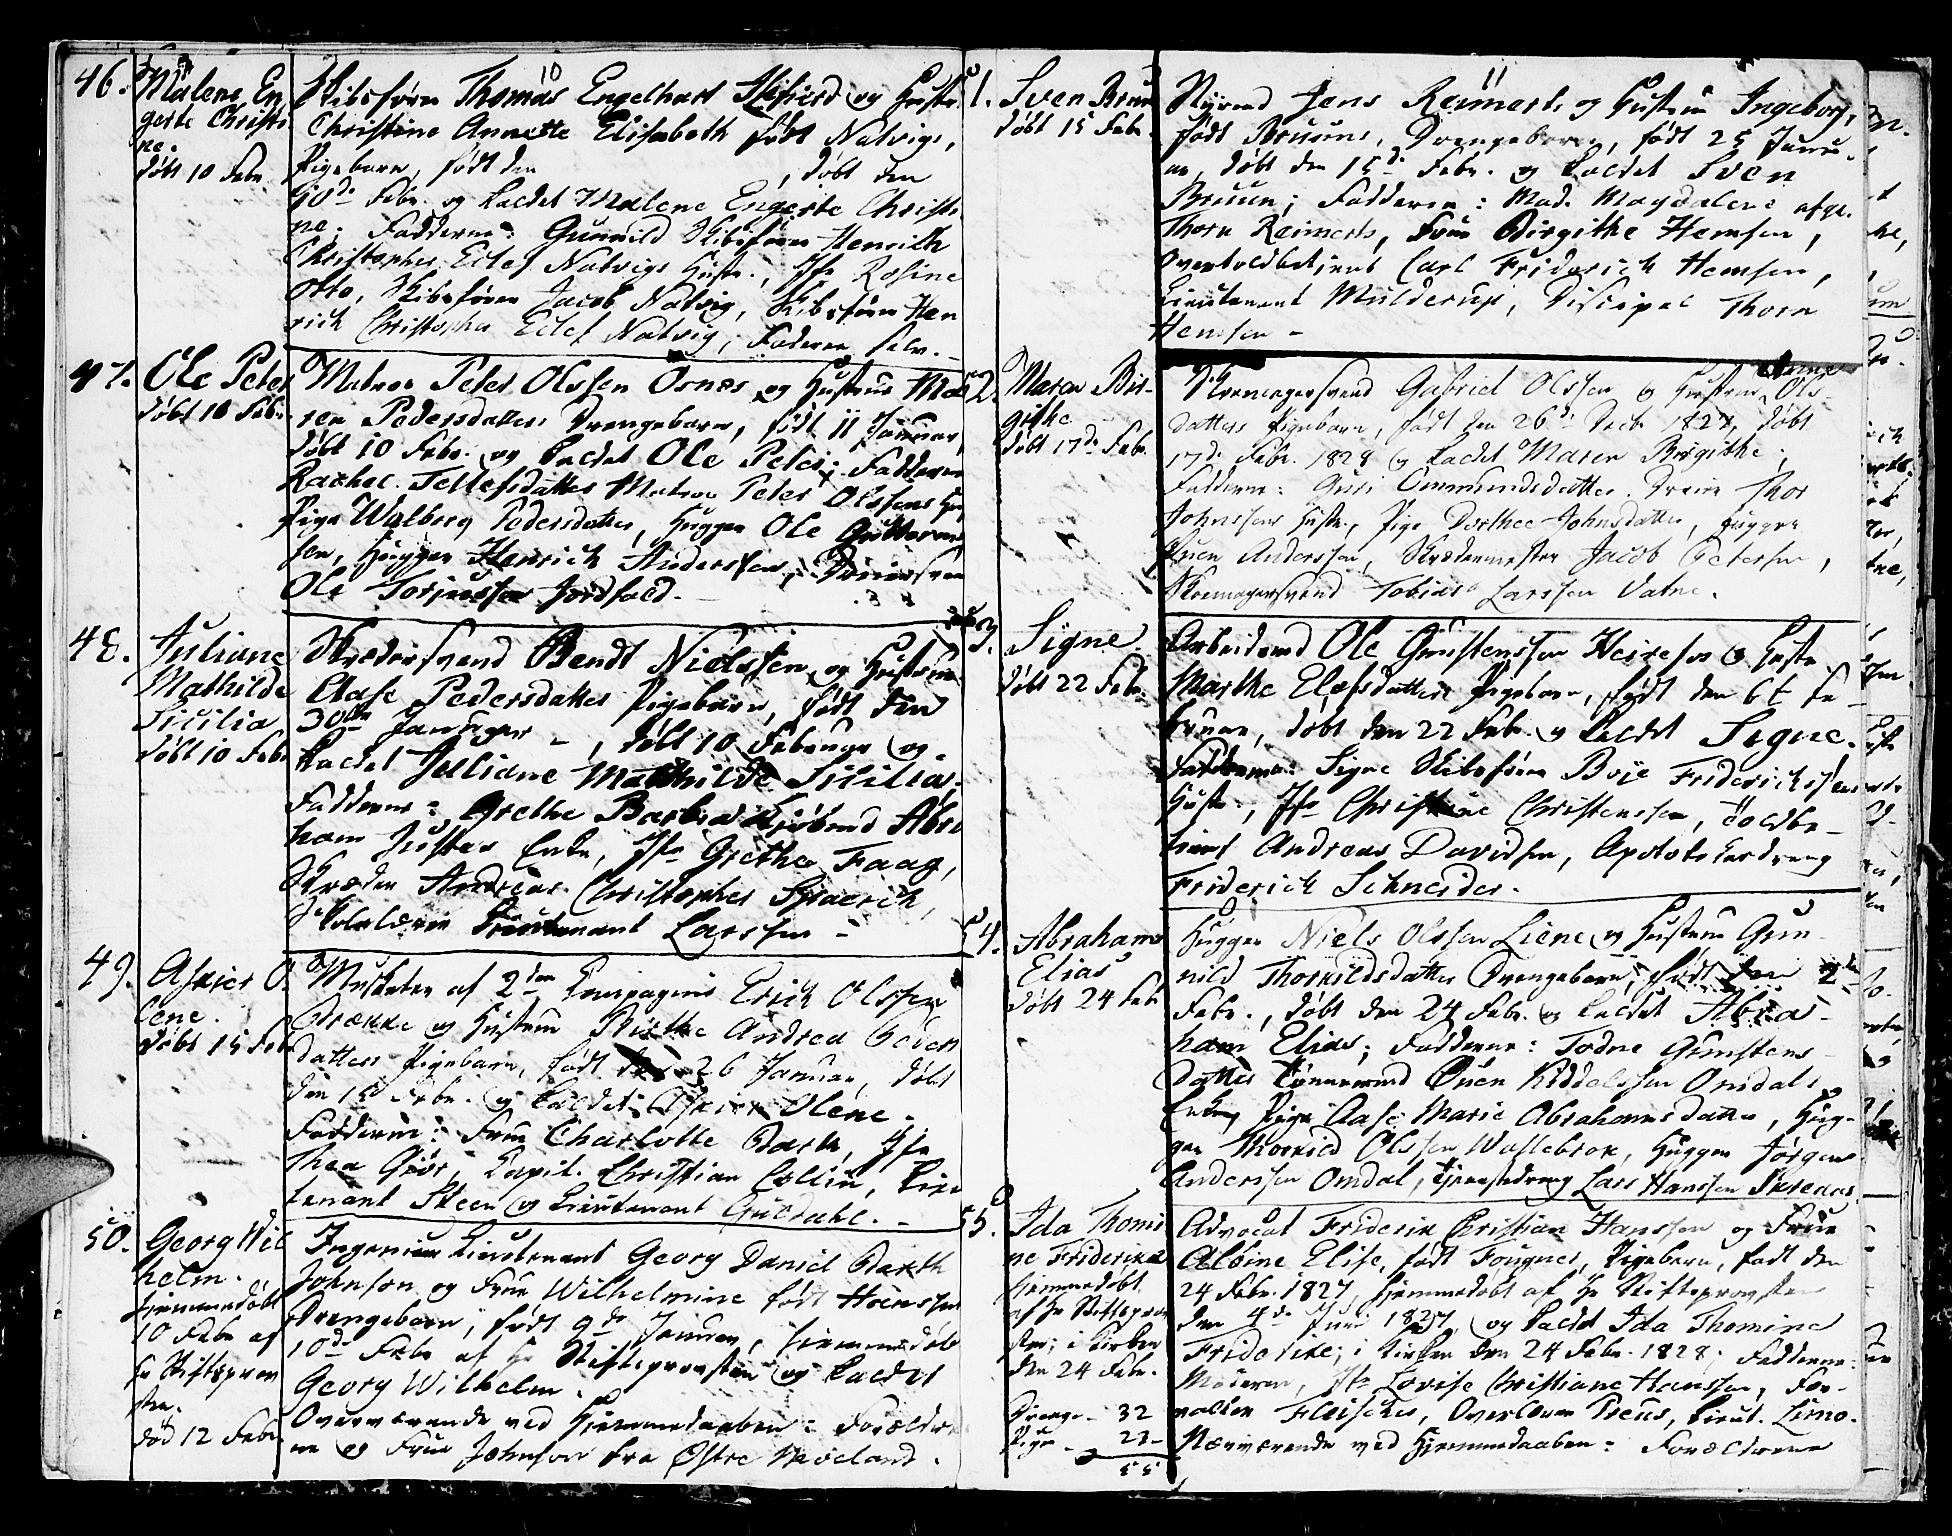 10
46.
Malene En
gerte Christi
ne.
døbt 10 Febr.
Skibsfører Thomas Engelhart og Hustr.
Christine Annette Elisabeth født Natvigs,
Pigebarn, født den , døbt den
10de Febr. og kaldet Malene Engerte Christi
ne. Fadderne: Gunnild Skibsfører Henrich
Christopher Eilef Natvigs Hustr., Jfr Rosine
Otto, Skibsfører Jacob Natvig, Skibsfører Hen
rich Christopher Eilef Natvig, Faderen selv.
47.
Ole Peter
døbt 10 Febr.
Matros Peter Olssen Osnæs og Hustrue Ma
ren Pedersdatters Drengebarn, født 11 Januar,
døbt 10 Febr. og kaldet Ole Peter; Fadderne
Rachel Tellefsdatter Matros Peter Olssens Hu,
Pige Walborg Pedersdatter, Hugger Ole Guttorm
sen, Hugger Henrich Anderssen, Dreiersven
Ole Torjussen Jordfald.
48.
Juliane
Mathilde
Sicilia
døbt 10 Febr
Skrædersvend Bendt Nielssen og Hustrue
Aase Pedersdatters Pigebarn, født den
30te Januar, døbt 10 Februar og
kaldet Juliane Mathilde Sicilia;
Fadderne: Grethe Barbra Kjøbmd Abra
ham Enke, Jfr Grethe Faag,
Skræder Andreas Christopher
Skolelærer Lieutenant Larssen
49.
Asnier O
lene.
døbt 15 Feb
Musketer af 2den Compagnie Erich Olssen
Brække og Hustrue Birthe Andrea Peders
datters Pigebarn, født den 26 Januar, døbt
den 15 Febr. og kaldet Olene.
Fadderne: Frue Charlotte Barth, Jfr
Thea Capit. Christian Collin, Lieu
tenant Steen og Lieutenant Guldahl.
50.
Georg Wil
helm.
hjemmedøbt
10 Febr af
Hr Stiftsprov
sten.
død 12 Febr
Ingenieur Lieutenant Georg Daniel Barth
Johnson og Frue Wilhelmine født Hanssen
Drengebarn, født 9de Januar, hjemmedøbt
10de Febr af Hr Stiftsprovsten og kaldet
Georg Wilhelm.
Overværende ved Hjemmedaaben: Forældre
ne og Frue Johnson fra Østre Moeland.
11
51.
Sven Bruun
døbt 15 Febr.
Styrmd Jens Reimerts og Hustrue Ingeborg,
født Bruuns, Drengebarn, født 25 Janu
ar, døbt den 15de Febr. og kaldet Sven
Bruun; Fadderne: Mad. Magdalene afg.
Thorn Reimerts, Frue Birgithe Hemsen,
Overtoldbetjent Carl Friderich Hemsen,
Lieutenant Mulderup, Discipel Thorn
Hemsen
52.
Maren Bir-
githe
døbt 17de Febr.
Skomagersvend Gabriel Olssen og Hustrue Anne Ols
datters Pigebarn, født den 26de Decbr 1827, døbt
17de Febr. 1828 og kaldet Maren Birgithe;
Fadderne: Guri Ommundsdatter Dreier Thor
Johnssens Hustr., Pige Dorthee Johnsdatter, Hugger
Ouen Anderssen, Skrædermester Jacob Petersen,
Skomagersvend Tobias Larssen Vatne.
53.
Signe.
døbt 22 Febr.
Arbeidsmd Ole Gunstenssen og Hustr.
Marthe Elefsdatters Pigebarn, født den 6te Fe
bruar, døbt den 22 Febr. og kaldet Signe.
Fadderne: Signe Skibsfører Boje Friderichsens
Hustr., Jfr Christine Christenssen, Toldbe
tjent Andreas Davidsen, Apothekerdreng
Friderich Schneider.
54.
Abraham
Elias
døbt 24 Feb
Hugger Niels Olssen Liene og Hustrue Gun
nild Thorkildsdatters Drengebarn, født den 2den
Febr., døbt den 24 Febr. og kaldet Abra-
ham Elias; Fadderne: Todne Gunstens
datter Tømmermd Ouen Kiddelssen Omdals
Enke, Pige Aase Marie Abrahamsdatter, Hug-
ger Thorkild Olssen Hugger Jørgen
Anderssen Omdal, Tjenestedreng Lars Hanssen
55.
Ida Thomi
ne Friderikæ
hjemmedøbt
af Hr Stiftsprov
sten; i Kirken
den 24 Febr.
Drenge - 32
Piger - 23
55
Advocat Friderik Christian Hanssen og Frue
Albine Elise, født Fougner, Pigebarn, født den
24 Febr. 1827, hjemmedøbt af Hr Stiftsprovsten
den 4de Juni 1827, og kaldet Ida Thomine
Friderike; i Kirken den 24 Febr. 1828; Fadderne:
Moderen, Jfr Lovise Christiane Hanssen, For-
valter Fleischer, Overlærer Preus, Lieut. Limo.
Nærværende ved Hjemmedaaben: Forældrene